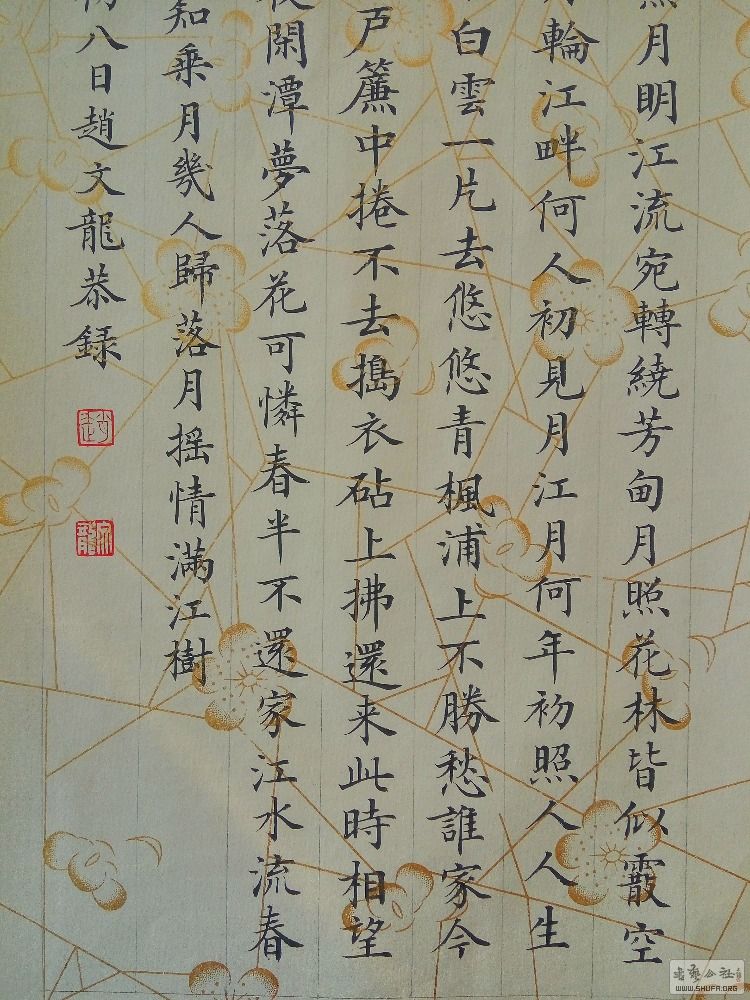 月明江流宛轉繞芳甸月照花林皆似霰空
輪江畔何人初見月江月何年初照人人生
白雲一片去悠悠青楓浦上不勝愁誰家今
戶簾中捲不去搗衣砧上拂還来此時相望
閑潭夢落花可憐春半不還家江水流春
知乘月幾人歸落月摇情滿江樹
八日趙文龍恭録
趙
文龍
WWW.SHUFA.ORG